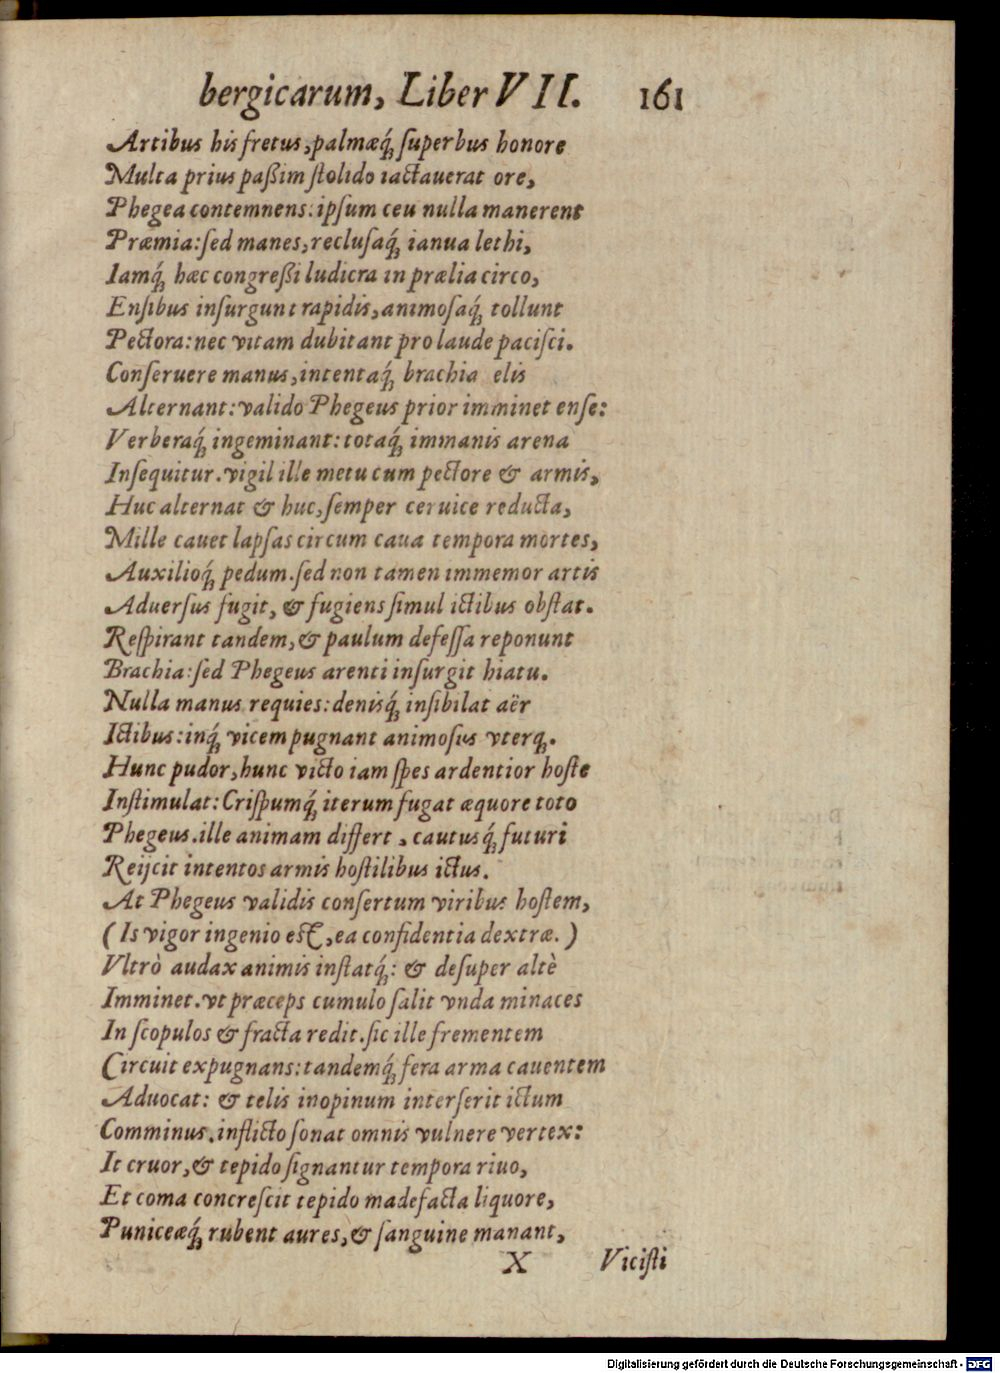 bergicarum, Liber VII. 161
Artibus his fretus, palmæq́; ſuperbus honore
Multa prius paßim ſtolido iactauerat ore,
Phegea contemnens: ipſum ceu nulla manerent
Præmia: ſed manes, recluſaq́; ianua lethi,
Iamq́; hæc congreßi ludicra in prælia circo,
Enſibus inſurgunt rapidis, animoſaq́; tollunt
Pectora: nec vitam dubitant pro laude paciſci.
Conſeruere manus, intentaq́; brachia elis
Alternant: valido Phegeus prior imminet enſe:
Verberaq́; ingeminant: totaq́; immanis arena
Inſequitur. vigil ille metu cum pectore & armis,
Huc alternat & huc, ſemper ceruice reducta,
Mille cauet lapſas circum caua tempora mortes,
Auxilioq́; pedum. ſed non tamen immemor artis
Aduerſus fugit, & fugiens ſimul ictibus obſtat.
Reſpirant tandem, & paulum defeſſa reponunt
Brachia: ſed Phegeus arenti inſurgit hiatu.
Nulla manus requies: denisq́; inſibilat aër
Ictibus: inq́; vicem pugnant animoſus vterq;.
Hunc pudor, hunc victo iam ſpes ardentior hoſte
Inſtimulat: Criſpumq́; iterum fugat æquore toto
Phegeus. ille animam differt, cautusq́; futuri
Reijcit intentos armis hoſtilibus ictus.
At Phegeus validis conſertum viribus hoſtem,
(Is vigor ingenio eſt, ea confidentia dextræ.)
Vltrò audax animis inſtatq́;: & deſuper altè
Imminet. vt præceps cumulo ſalit vnda minaces
In ſcopulos & fracta redit. ſic ille frementem
Circuit expugnans: tandemq́; fera arma cauentem
Aduocat: & telis inopinum interſerit ictum
Comminus. inflicto ſonat omnis vulnere vertex:
It cruor, & tepido ſignantur tempora riuo,
Et coma concreſcit tepido madefacta liquore,
Puniceæq́; rubent aures, & ſanguine manant,
X Viciſti
Digitalisierung gefördert durch die Deutsche Forschungsgemeinschaft - DFG